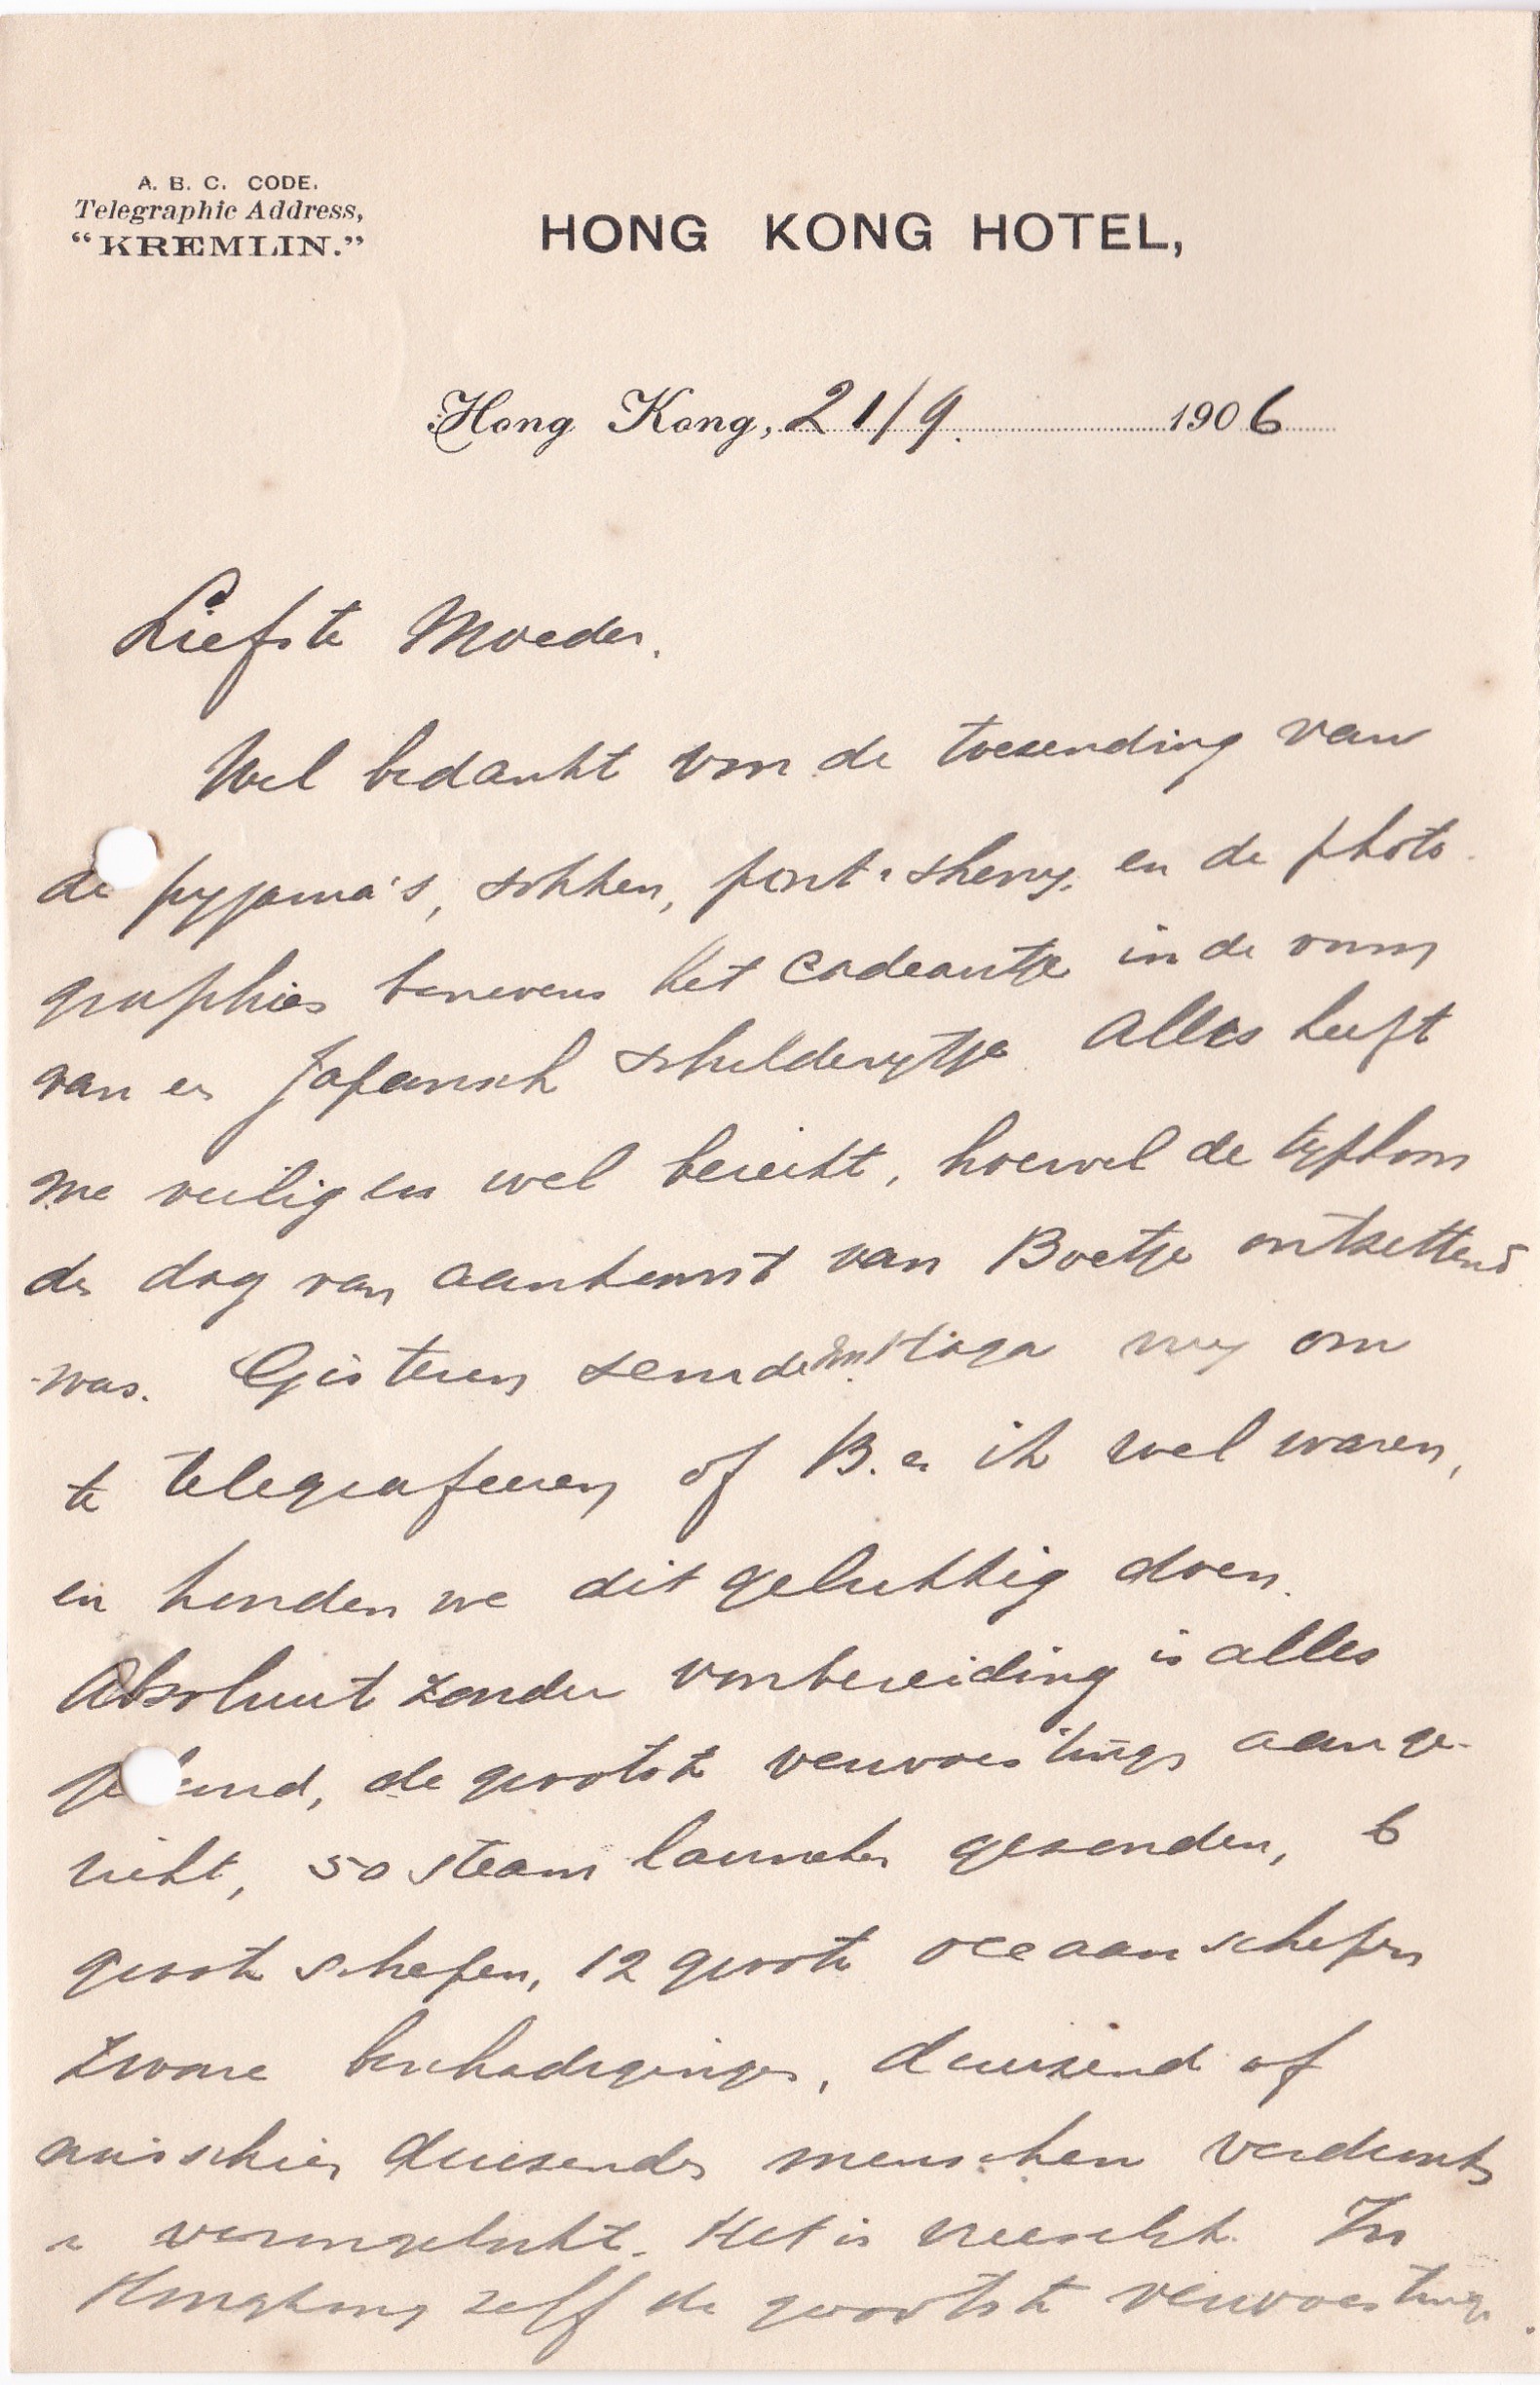 A. B. C. CODE.
Telegraphic Address,
"KREMLIN."
HONG KONG HOTEL,
Hong Kong, 21/9. 1906
Liefste Moeder.
Wel bedankt voor de toezending van
de pyjama's, sokken, port & sherry, en de photo
graphies benevens het cadeautje in de vorm
van en Japansch schilderytje. Alles heeft
me veilig en wel bereikt, hoewel de typhoon
de dag van aankomst van Boetje ontzettend
was. Gisteren seinde Haga my om
te telegrafeeren of B. en ik wel waren,
en konden we dit gelukkig doen.
Absoluut zonder voorbereiding is alles
gebeurd, de grootste verwoestings aange-
richt, 50 steam launches gezonken, 6
groote schepen, 12 groote oceaanschepen
zware beschadigingen, duizend of
misschien duizenden menschen verdronken
& verongelukt. Het is vreeselik. In
Hongkong zelf de grootste verwoestings.